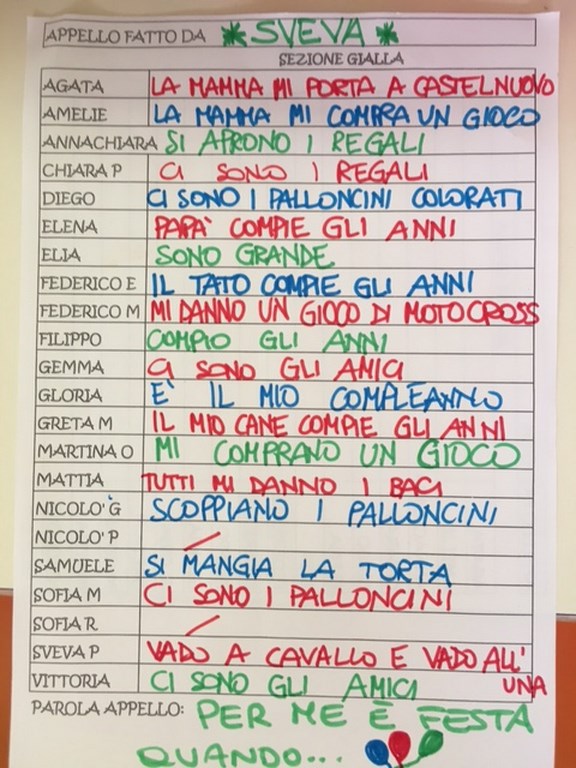 APPELLO FATTO DA *SVEVA*
SEZIONE GIALLA
AGATA LA MAMMA MI PORTA A CASTELNUOVO
AMELIE LA MAMMA MI COMPRA UN GIOCO
ANNACHIARA SI APRONO I REGALI
CHIARA P CI SONO I REGALI
DIEGO CI SONO I PALLONCINI COLORATI
ELENA PAPA' COMPIE GLI ANNI
ELIA SONO GRANDE
FEDERICO E IL TATO COMPIE GLI ANNI
FEDERICO M MI DANNO UN GIOCO DI MOTOCROSS
FILIPPO COMPIO GLI ANNI
GEMMA CI SONO GLI AMICI
GLORIA E' IL MIO COMPLEANNO
GRETA M IL MIO CANE COMPIE GLI ANNI
MARTINA O MI COMPRANO UN GIOCO
MATTIA TUTTI MI DANNO I BACI
NICOLO' G SCOPPIANO I PALLONCINI
NICOLO' P /
SAMUELE SI MANGIA LA TORTA
SOFIA M CI SONO I PALLONCINI
SOFIA R /
SVEVA P VADO A CAVALLO E VADO ALL'
UNA
VITTORIA CI SONO GLI AMICI
PAROLA APPELLO: PER ME È FESTA
QUANDO...